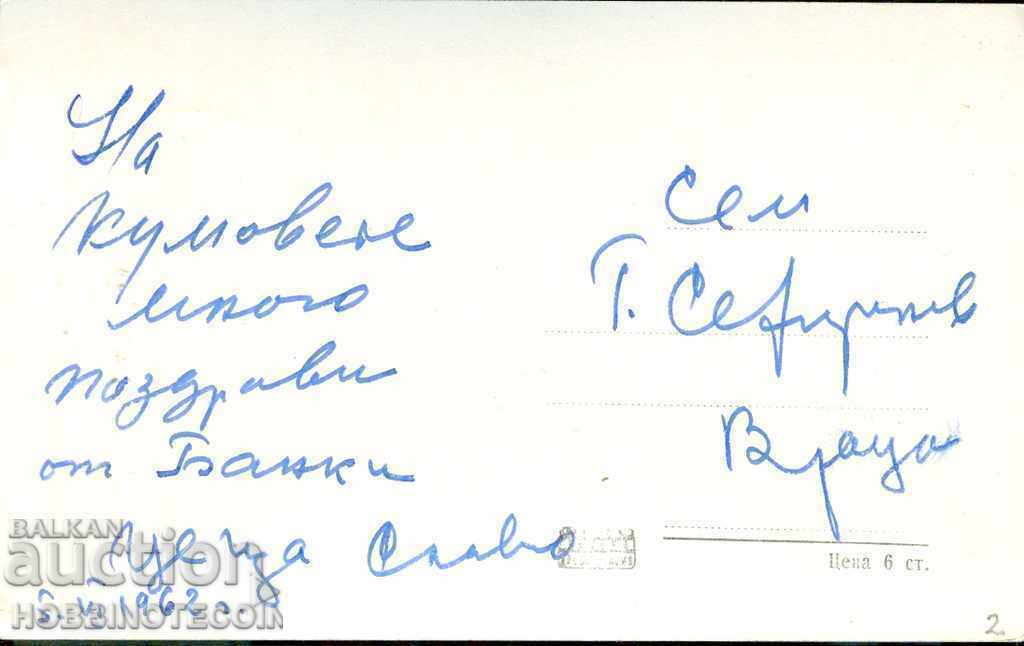 На
кумовете
много
поздрави
от Банки
Цеца Славчо
5.VI 1962
Сем
Г. Серафимов
Враца
Цена 6 ст.
BALKAN
auction
HOBBINOTECOIN
2.